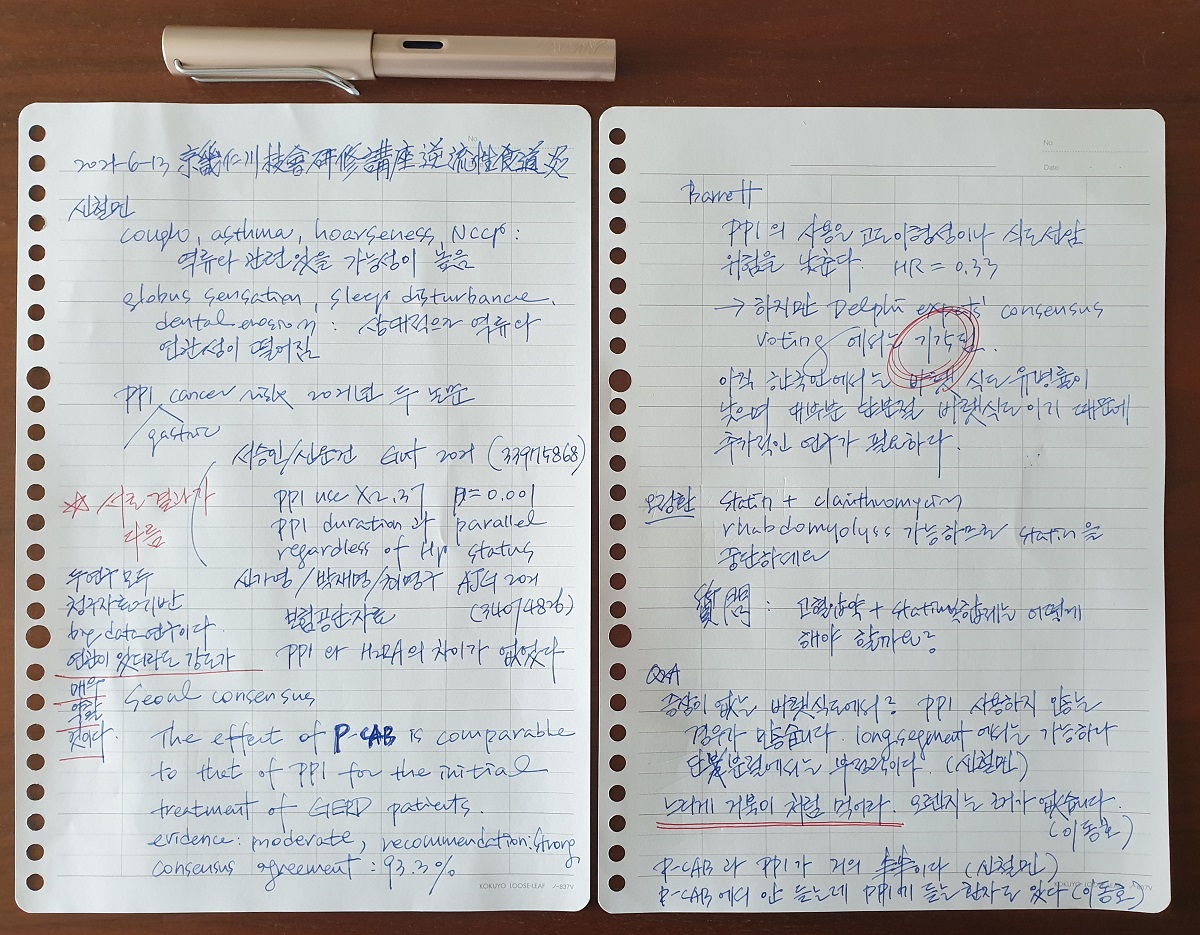 2021-6-13 京畿仁川技會研修講座 逆流性食道炎
신철민
cough, asthma, hoarseness, NCCP:
역류와 관련 있을 가능성이 높음
globus sensation, sleep disturbance,
dental erosion: 상대적으로 역류와
연관성이 떨어짐
PPI cancer risk 2021년 두 논문
gastric
서승인/신운건 Gut 2021 (33975868)
☆ 서로 결과가
다름
PPI use X2.37 p=0.001
PPI duration과 parallel
regardless of Hp status
두연구 모두
청구자료 기반
big data 연구이다.
연관이 있더라도 강도가
매우
약할
것이다.
신가영/박재명/최명규 AJG 2021
보험공단자료 (34074826)
PPI와 H2RA의 차이가 없었다
Seoul consensus
The effect of P-CAB is comparable
to that of PPI for the initial
treatment of GERD patients.
evidence: moderate, recommendation: strong
consensus agreement: 93.3%
KOKUYO LOOSE-LEAF ノ-837V
No.
Date
Barrett
PPI의 사용은 고도이형성이나 식도선암
위험을 낮춘다. HR = 0.33
→ 하지만 Delphi experts' consensus
voting 에서는 기각됨.
아직 한국인에서는 바렛 식도 유병률이
낮으며 대부분 단분절 바렛식도이기 때문에
추가적인 연구가 필요하다.
오정환 statin + clarithromycin
rhabdomyolysis 가능하므로 statin을
중단하세요
質問: 고혈압약 + statin 복합제는 어떻게
해야 할까요?
Q&A
증상이 없는 바렛식도에서는 PPI 사용하지 않는
경우가 많습니다. long segment 에서는 가능하나
단분절에서는 부정적이다. (신철민)
느리게 거북이 처럼 먹어라. 오렌지는 근거가 없습니다.
(이동호)
P-CAB과 PPI가 거의 이다 (신철민)
P-CAB에서 안 듣는데 PPI에 듣는 환자도 있다 (이동호)